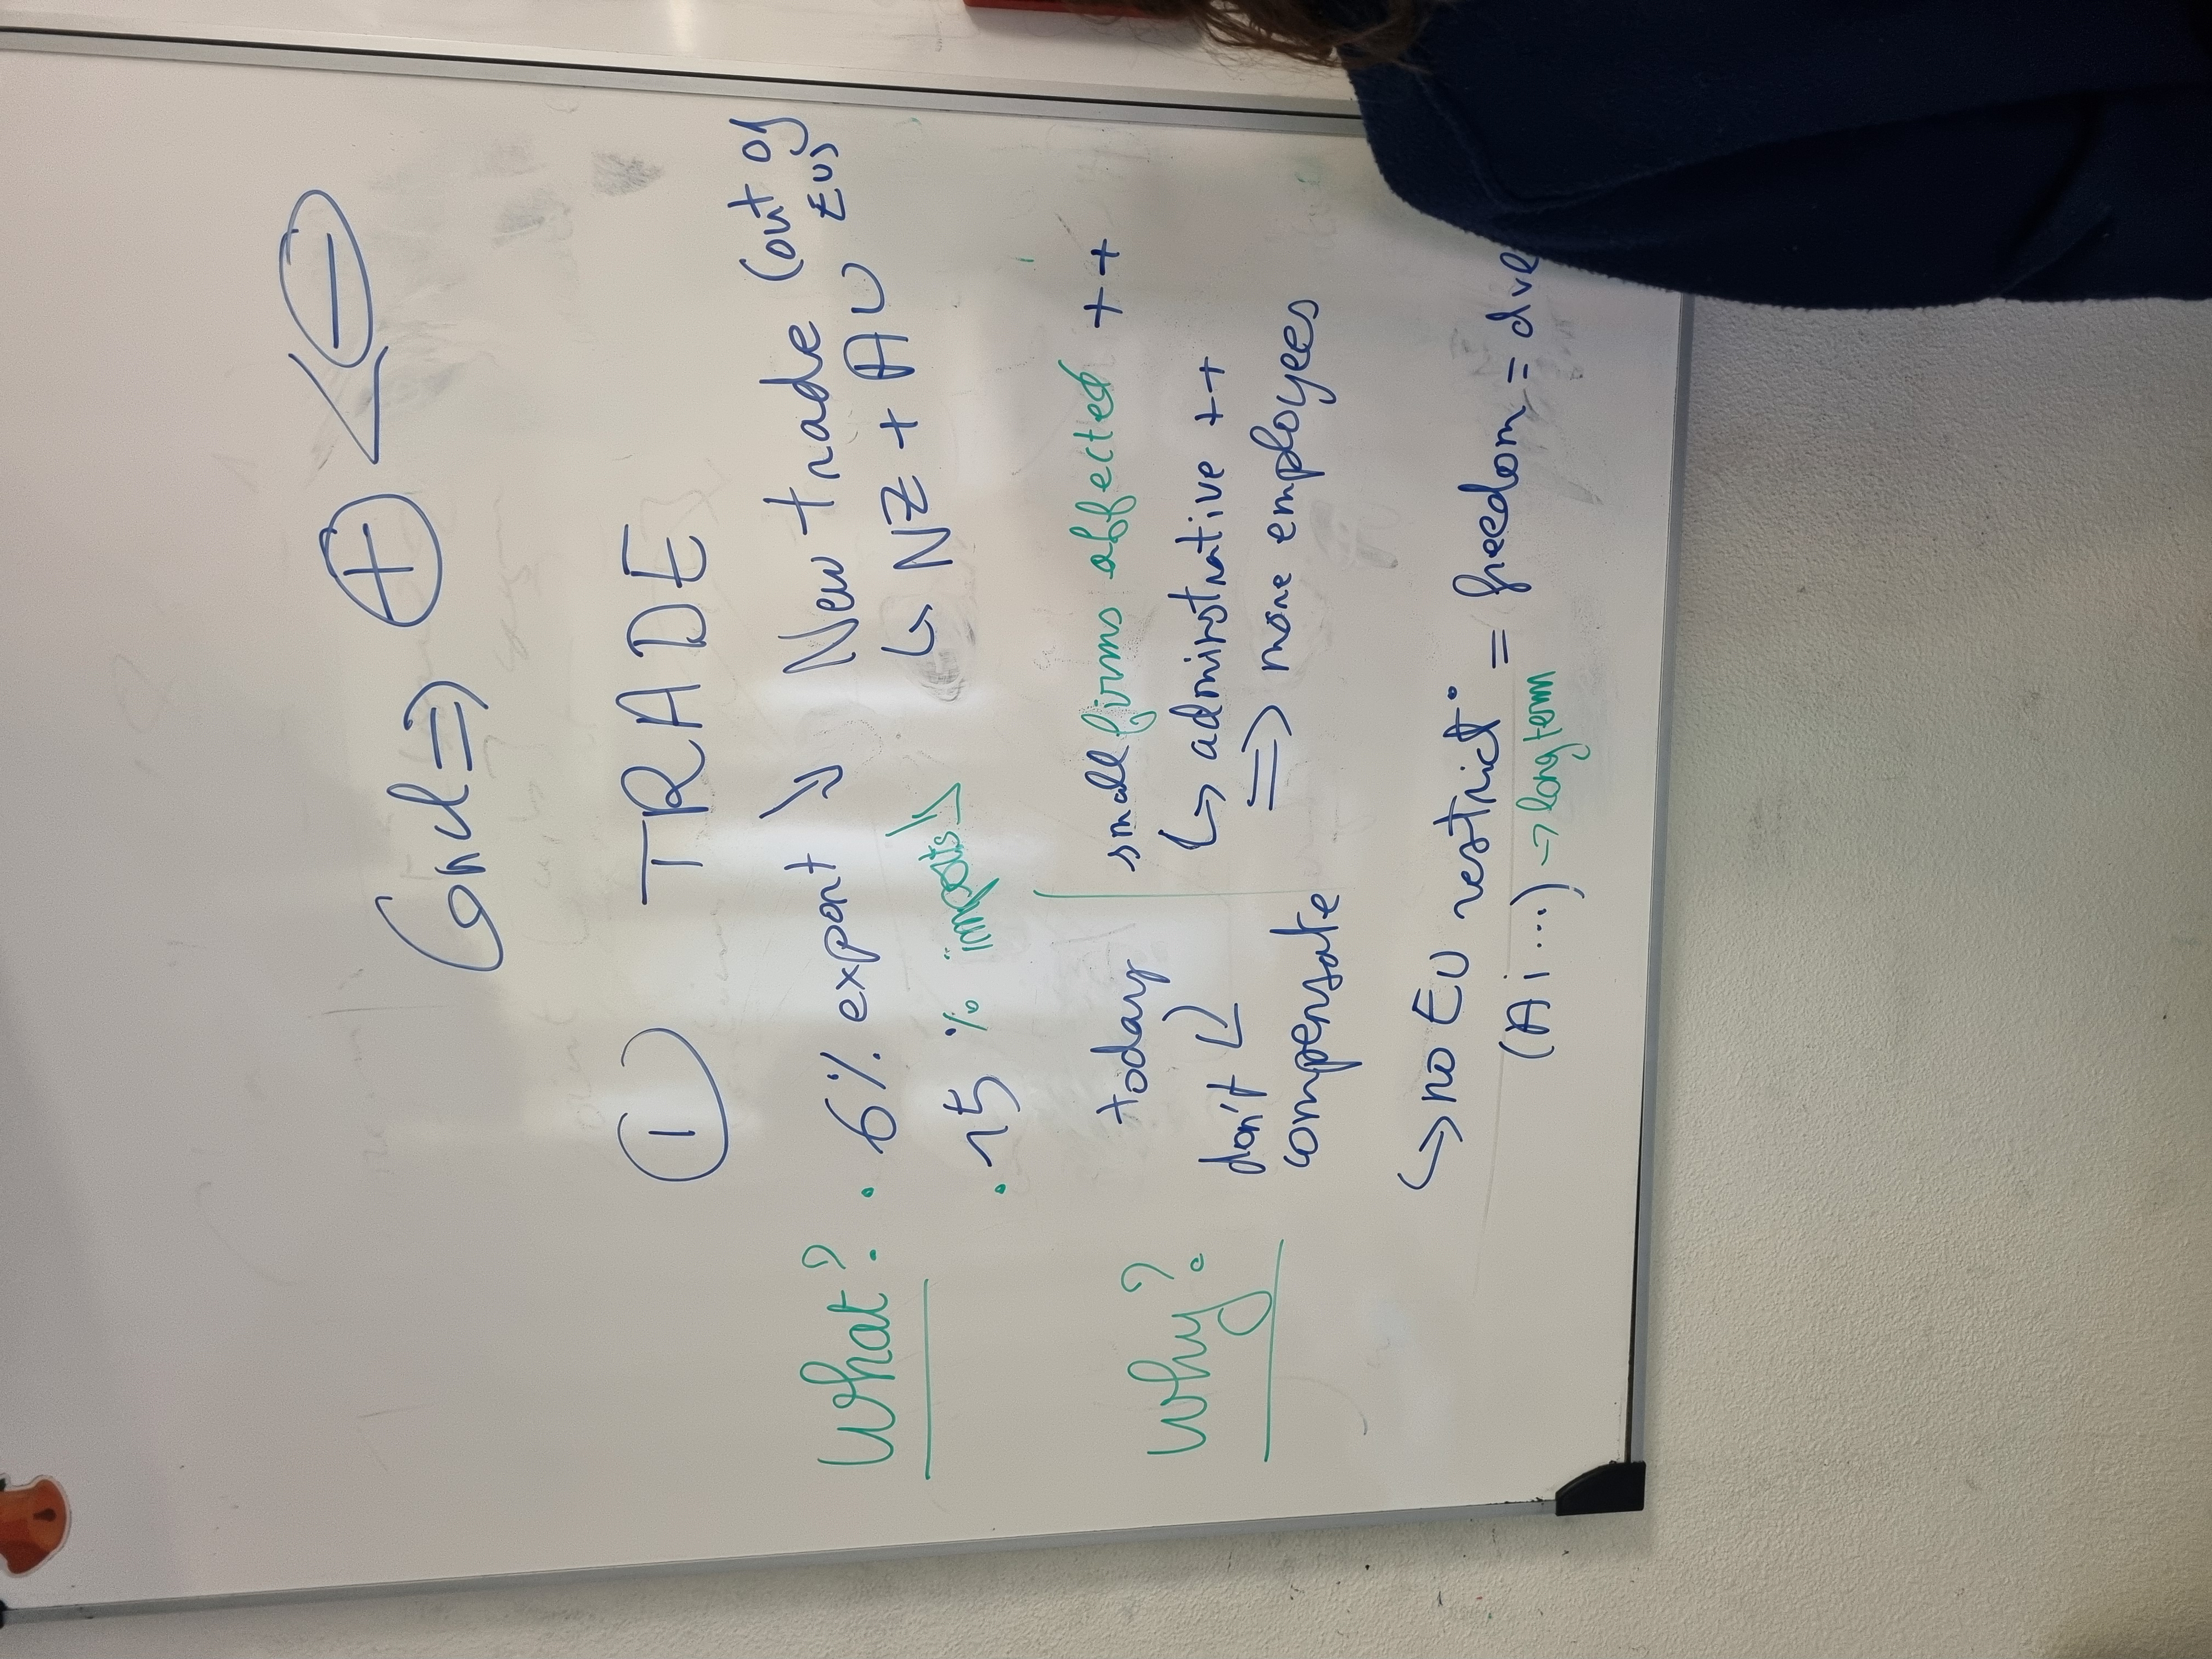 ⊕ < ⊖
①
TRADE
What?
. 6% export ↘ New trade (out of
EU)
↳ NZ + AU
. 15 % imports ↘
Why?
today
small firms affected ++
don't
↳ administrative ++
compensate
⇒ more employees
↳ no EU restrict° = freedom = dve
(Ai ...) → long term